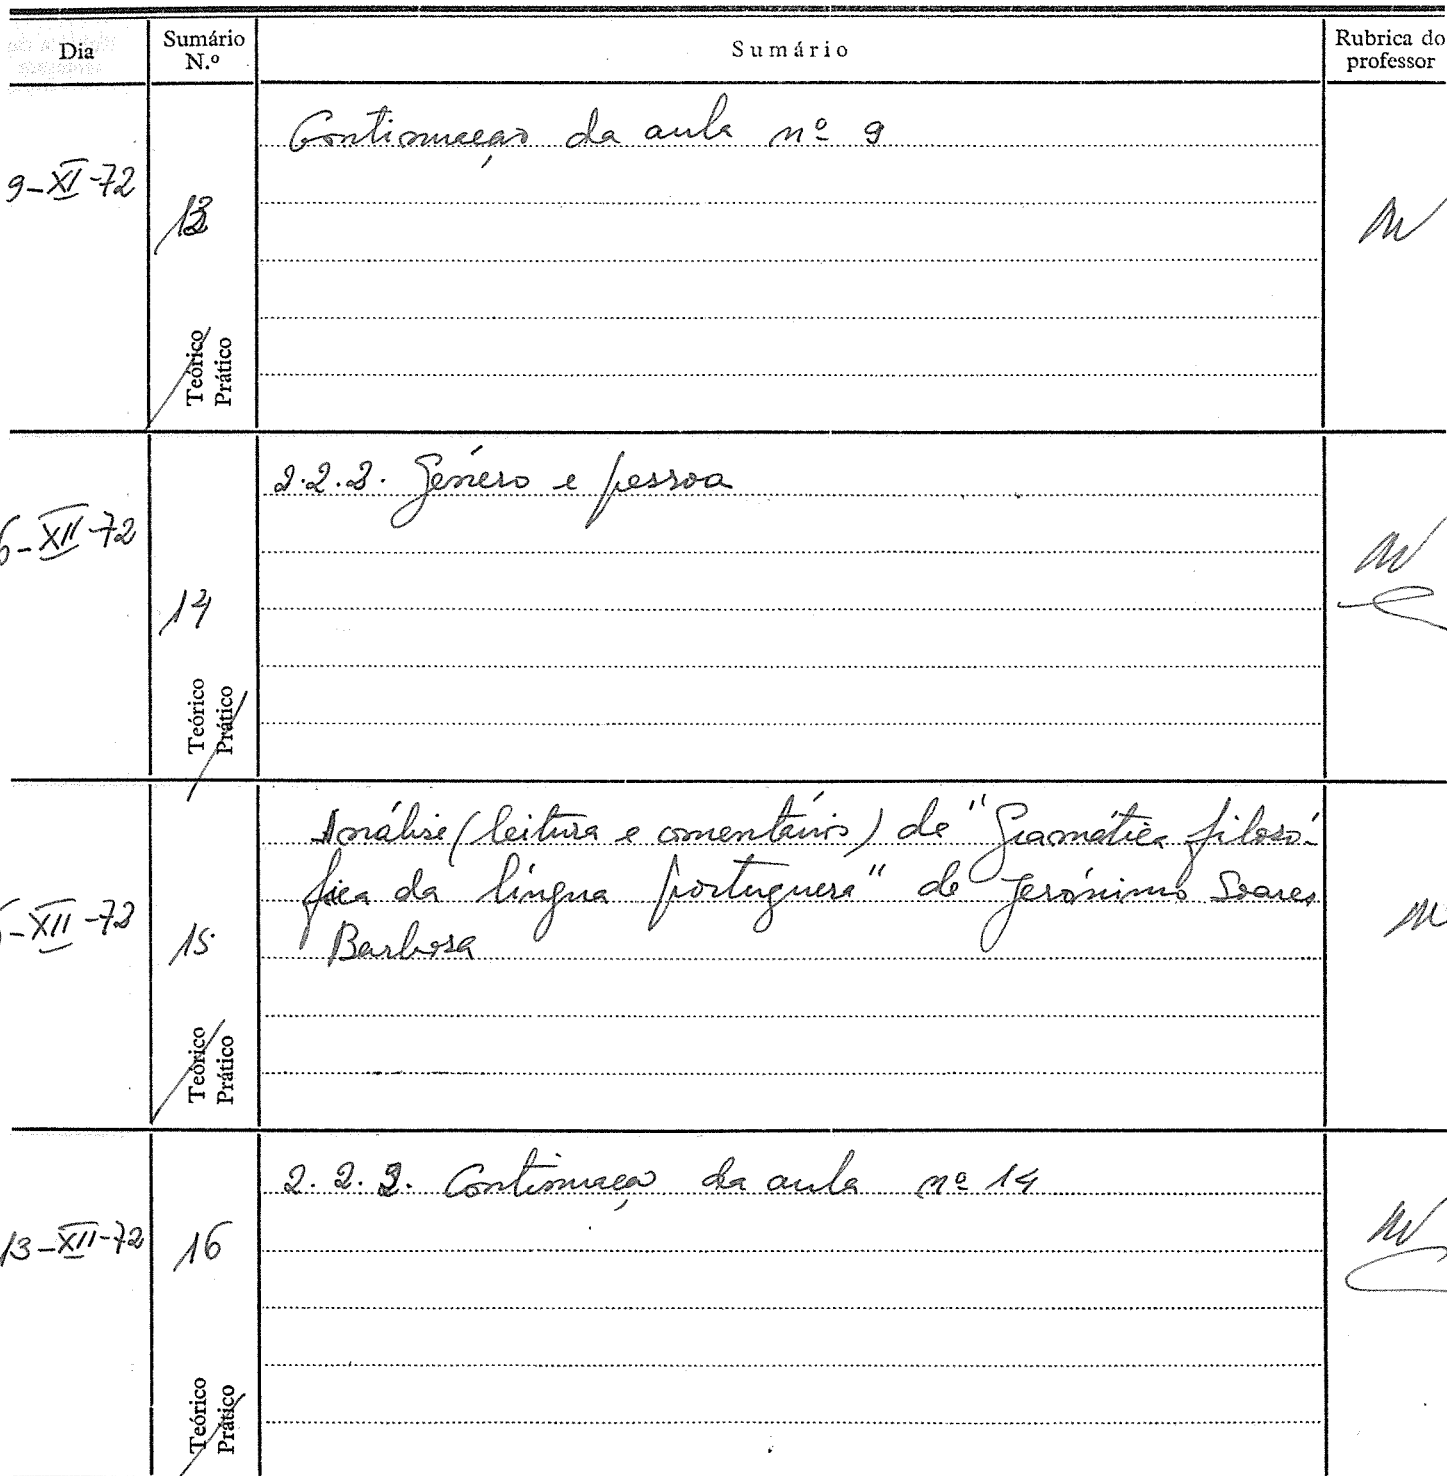 Dia Sumário N.º Sumário Rubrica do professor
Continuação da aula nº 9
9-XI-72
13
Teórico
Prático
2.2.3. Género e pessoa
6-XII-72
14
Teórico
Prático
Análise (leitura e comentário) de "Gramática filosó-
fica da língua portuguesa" de Jerónimo Soares
Barbosa
6-XII-72
15
Teórico
Prático
2.2.3. Continuação da aula nº 14
13-XII-72
16
Teórico
Prático